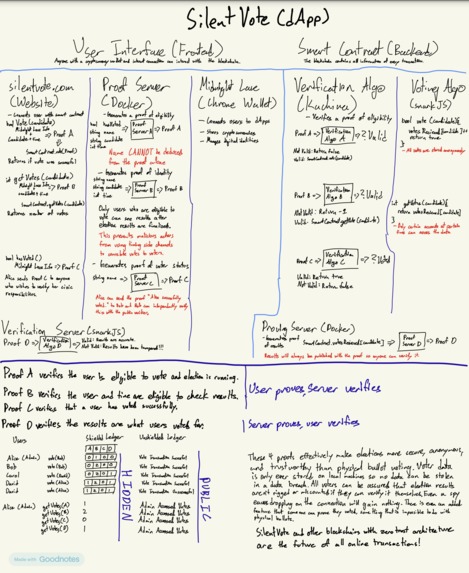 SilentVote (dApp)
User Interface (Frontend)
Anyone with a cryptocurrency wallet and internet connection can interact with the blockchain.
Smart Contract (Backend)
The blockchain contains all information of every transaction.
silentvote.com
(Website)
- Connects user with smart contract
bool Vote (Candidate)
Midnight Lace Info
Candidate + time
=> Proof A
SmartContract.vote(ProofA)
Returns if vote was successful
int getVotes (Candidate)
Midnight Lace Info
time
=> Proof B
SmartContract.getVotes(Candidate)
Returns number of votes
bool hasVoted ()
Midnight Lace Info => Proof C
Also sends Proof C to anyone
who wishes to verify her civic
responsibilities.
Proof Server
(Docker)
- Generates a proof of eligibility
bool hasVoted
string name
string candidate
int time
=> Proof Server A => Proof A
Name CANNOT be deduced
from the proof alone
- Generates proof of identity
string name
string candidate
int time
=> Proof Server B => Proof B
Only users who are eligible to
vote can see results after
election results are finalized.
This prevents malicious actors
from using
side channels
to correlate votes to voters.
- Generates proof of voter status
string name => Proof Server C => Proof C
Midnight Lace
(Chrome Wallet)
- Connects users to dApps
- Stores cryptocurrencies
- Manages digital identities
Verification Algo
(Kachina)
- Verifies a proof of eligibility
Proof A => Verification Algo A => ? Valid
Not Valid: Return false
Valid: SmartContract.vote(Candidate)
Proof B => Verification Algo B => ? Valid
Not Valid: Return -1
Valid: SmartContract.getVotes(Candidate)
Proof C => Verification Algo C => ? Valid
Valid: Return true
Not Valid: Return false
Voting Algo
(snarkJS)
bool vote (Candidate) {
votes Received [Candidate]++
return true
}
- All votes are stored anonymously
int getVotes (Candidate) {
return votesReceived[Candidate]
}
- Only certain accounts at certain time can access the data
Verification Server (SnarkJS)
Proof D => Verification Algo D => Valid: Results are accurate.
Not Valid: Results have been tampered!!!
Proving Server (Docker)
- Generates proof of results
SmartContract.votesReceived[Candidate] => Proof Server D => Proof D
Results will always be published with the proof so anyone can verify it
Proof A verifies the user is eligible to vote and election is running.
Proof B verifies the user and time are eligible to check results.
Proof C verifies that a user has voted successfully.
Proof D verifies the results are what users voted for.
User proves, Server verifies
Server proves, user verifies
Users
Shielded Ledger
Unshielded Ledger
A B C D
Alice (Admin) vote(Bob)
Bob
Carol
David
David
Alice (Admin) getVotes(A)
getVotes(B)
getVotes(C)
getVotes(D)
HIDDEN
PUBLIC
Vote Transaction Successful
Vote Transaction Successful
Vote Transaction Successful
Vote Transaction Successful
Vote Transaction Unsuccessful
Admin Accessed Votes
Admin Accessed Votes
Admin Accessed Votes
Admin Accessed Votes
These 4 proofs effectively make elections more secure, anonymous,
and trustworthy than physical ballot voting. Voter data
is only ever stored on local machines so no data can be stolen
in a data breach. All voters can be assured that election results
aren't rigged or miscounted if they can verify it themselves. Even a spy
eavesdropping on the connection will gain nothing. There is even an added
feature that someone can prove they voted, something that is impossible to do with
physical ballots.
SilentVote and other blockchains with zero trust architecture
are the future of all online transactions!
Made with Goodnotes